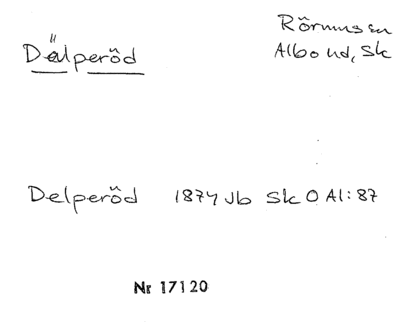 Dälperöd
Rörum sn
Albo hd, Sk
Delperöd 1874 Jb Sk O Al:87
Nr 17120